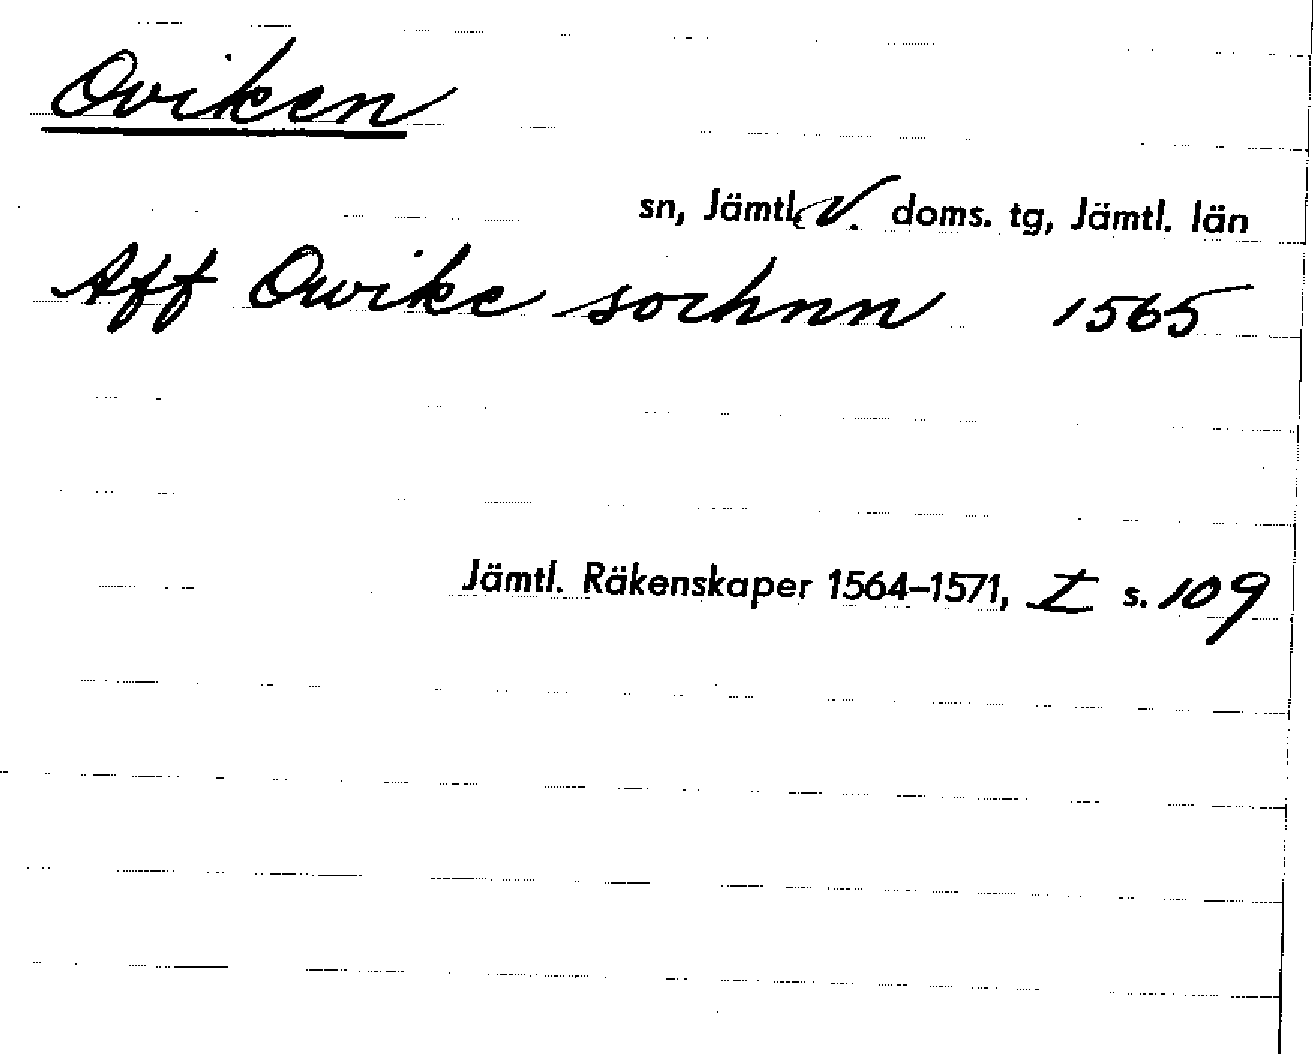 Oviken
sn, Jämtl. V. doms. tg, Jämtl. län
Aff Owike sochnn 1565
Jämtl. Räkenskaper 1564–1571, I s. 109